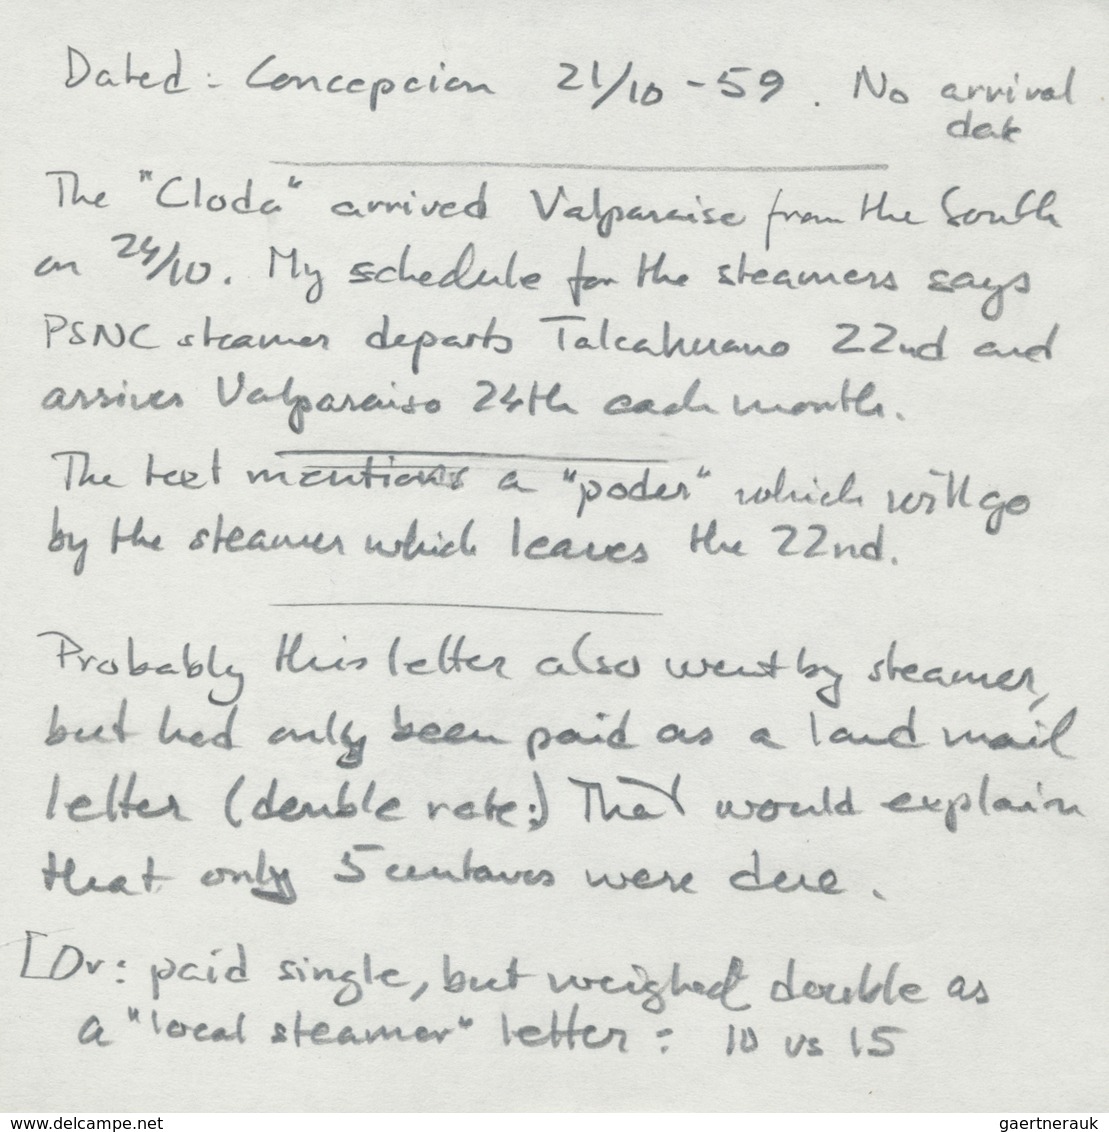 Dated: Concepcion 21/10 - 59. No arrival
date
The "Cloda" arrived Valparaiso from the South
on 24/10. My schedule for the steamers says
PSNC steamer departs Talcahuano 22nd and
arrives Valparaiso 24th each month.
The text mentions a "poder" which will go
by the steamer which leaves the 22nd.
Probably this letter also went by steamer,
but had only been paid as a land mail
letter (double rate:) That would explain
that only 5 centavos were due.
[Or: paid single, but weighed double as
a "local steamer" letter: 10 vs 15
www.delcampe.net
gaertnerauk